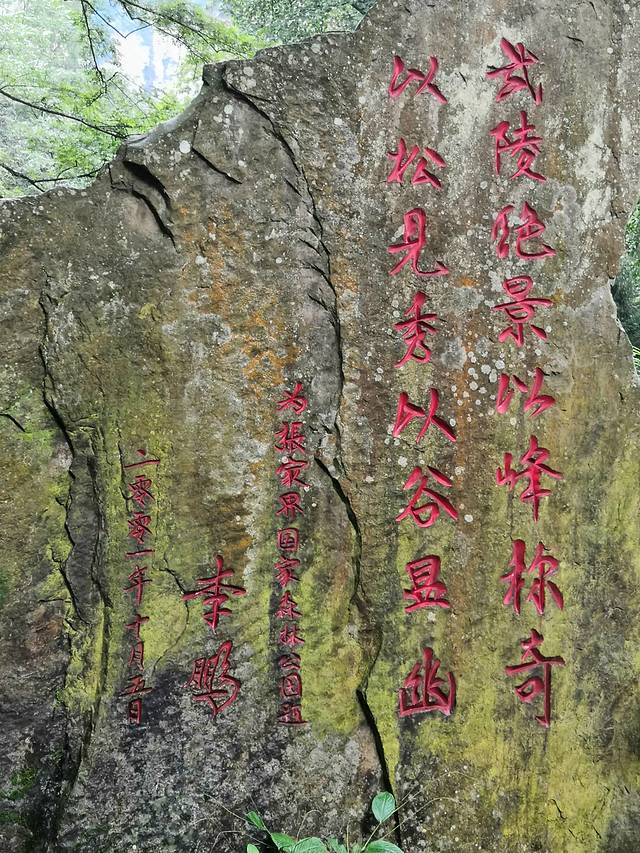 武陵绝景以峰称奇
以松见秀以谷显幽
为張家界国家森林公园题
李鹏
二零零一年十月五日